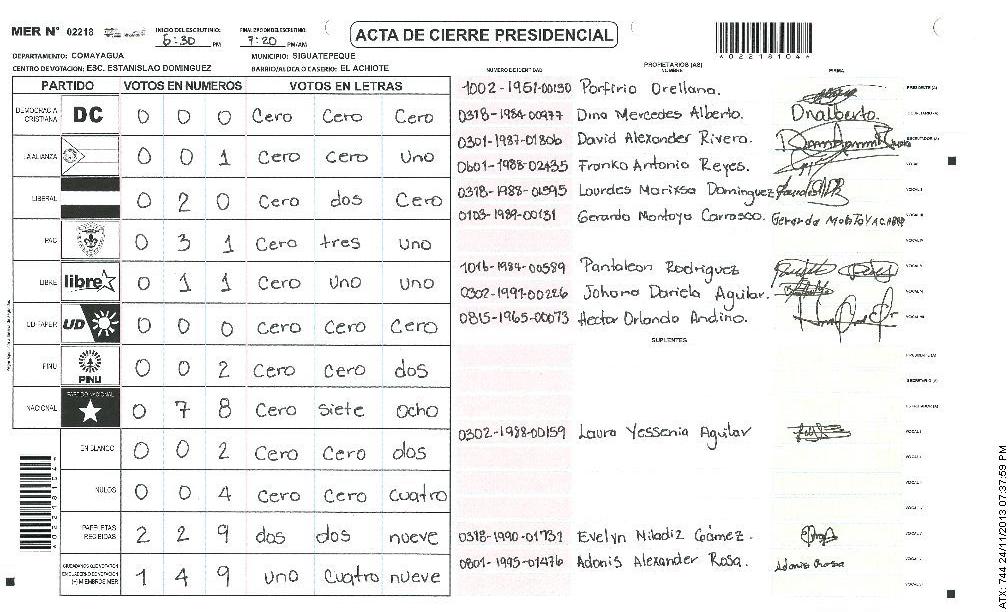 MER Nº 02218
INICIO DEL ESCRUTINIO: 6:30 PM
FINALIZACION DEL ESCRUTINIO: 7:20 PM/AM
ACTA DE CIERRE PRESIDENCIAL
*022181044*
DEPARTAMENTO: COMAYAGUA
MUNICIPIO: SIGUATEPEQUE
CENTRO DE VOTACION: ESC. ESTANISLAO DOMINGUEZ
BARRIO/ALDEA O CASERIO: EL ACHIOTE
PARTIDO VOTOS EN NUMEROS VOTOS EN LETRAS
DEMOCRACIA CRISTIANA DC 0 0 0 Cero Cero Cero
LA ALIANZA 0 0 1 Cero Cero Uno
LIBERAL 0 2 0 Cero dos Cero
PAC 0 3 1 Cero tres uno
LIBRE libre 0 1 1 Cero Uno uno
UD FAPER UD 0 0 0 Cero Cero Cero
PINU PINU 0 0 2 Cero Cero dos
NACIONAL PARTIDO NACIONAL 0 7 8 Cero siete ocho
EN BLANCO 0 0 2 Cero Cero dos
NULOS 0 0 4 Cero Cero cuatro
PAPELETAS RECIBIDAS 2 2 9 dos dos nueve
CIUDADANOS QUE VOTARON EN CUADERNO DE VOTACION (+) MIEMBROS MER 1 4 9 uno Cuatro nueve
NUMERO DE IDENTIDAD
PROPIETARIOS (AS)
NOMBRE
FIRMA
1002-1951-00130 Porfirio Orellana. PRESIDENTE (A)
0318-1984-00977 Dina Mercedes Alberto. Dnalberto. SECRETARIO (A)
0301-1987-01806 David Alexander Rivera. ESCRUTADOR (A)
0601-1988-02435 Franko Antonio Reyes.
0318-1988-01595 Lourdes Marixsa Dominguez
0103-1989-00131 Gerardo Montoya Carrasco.
1016-1984-00589 Pantaleon Rodriguez
0302-1997-00226 Johana Dariela Aguilar.
0815-1965-00073 Hector Orlando Andino.
SUPLENTES
PRESIDENTE (A)
SECRETARIO (A)
ESCRUTADOR (A)
0302-1988-00159 Laura Yessenia Aguilar
0318-1990-01731 Evelyn Niladiz Gámez.
0801-1995-01476 Adonis Alexander Rosa. Adonis Rosa
ATX: 744 24/11/2013 07:37:59 PM